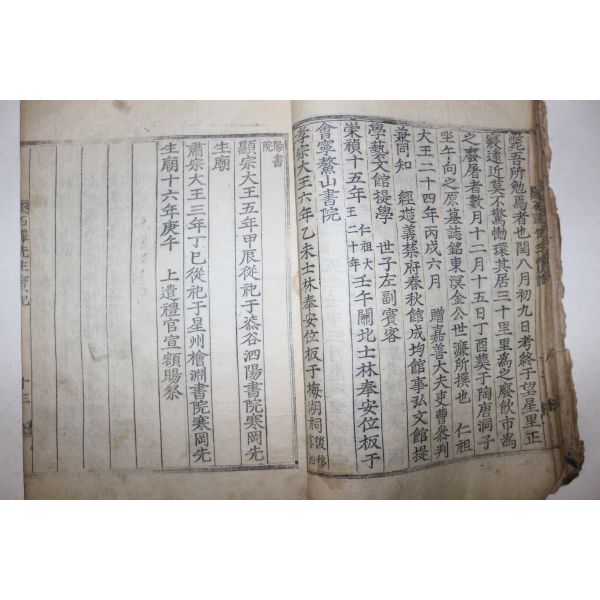 斃吾所勉焉者也閏八月初九日考終于望星里正
寢遠近莫不驚慟環其居三十里里爲之廢飮市爲
之廢屠者數月十二月十五日丁酉葬于陶唐洞子
坐午向之原墓誌銘東溟金公世濂所撰也 仁祖
大王二十四年丙戌六月 贈嘉善大夫吏曹參判
兼同知 經筵義禁府春秋館成均館事弘文館提
學藝文館提學 世子左副賓客
崇禎十五年 仁祖大王二十年 壬午關北士林奉安位板于
會寧鰲山書院
孝宗大王六年乙未士林奉安位板于梅湖祠 後移
陽書院
顯宗大王五年甲辰從祀于泗陽書院寒岡先
生廟
肅宗大王三年丁巳從祀于星州檜淵書院寒岡先
生廟十六年庚午 上遣禮官宣額賜祭
石潭先生實記
十三